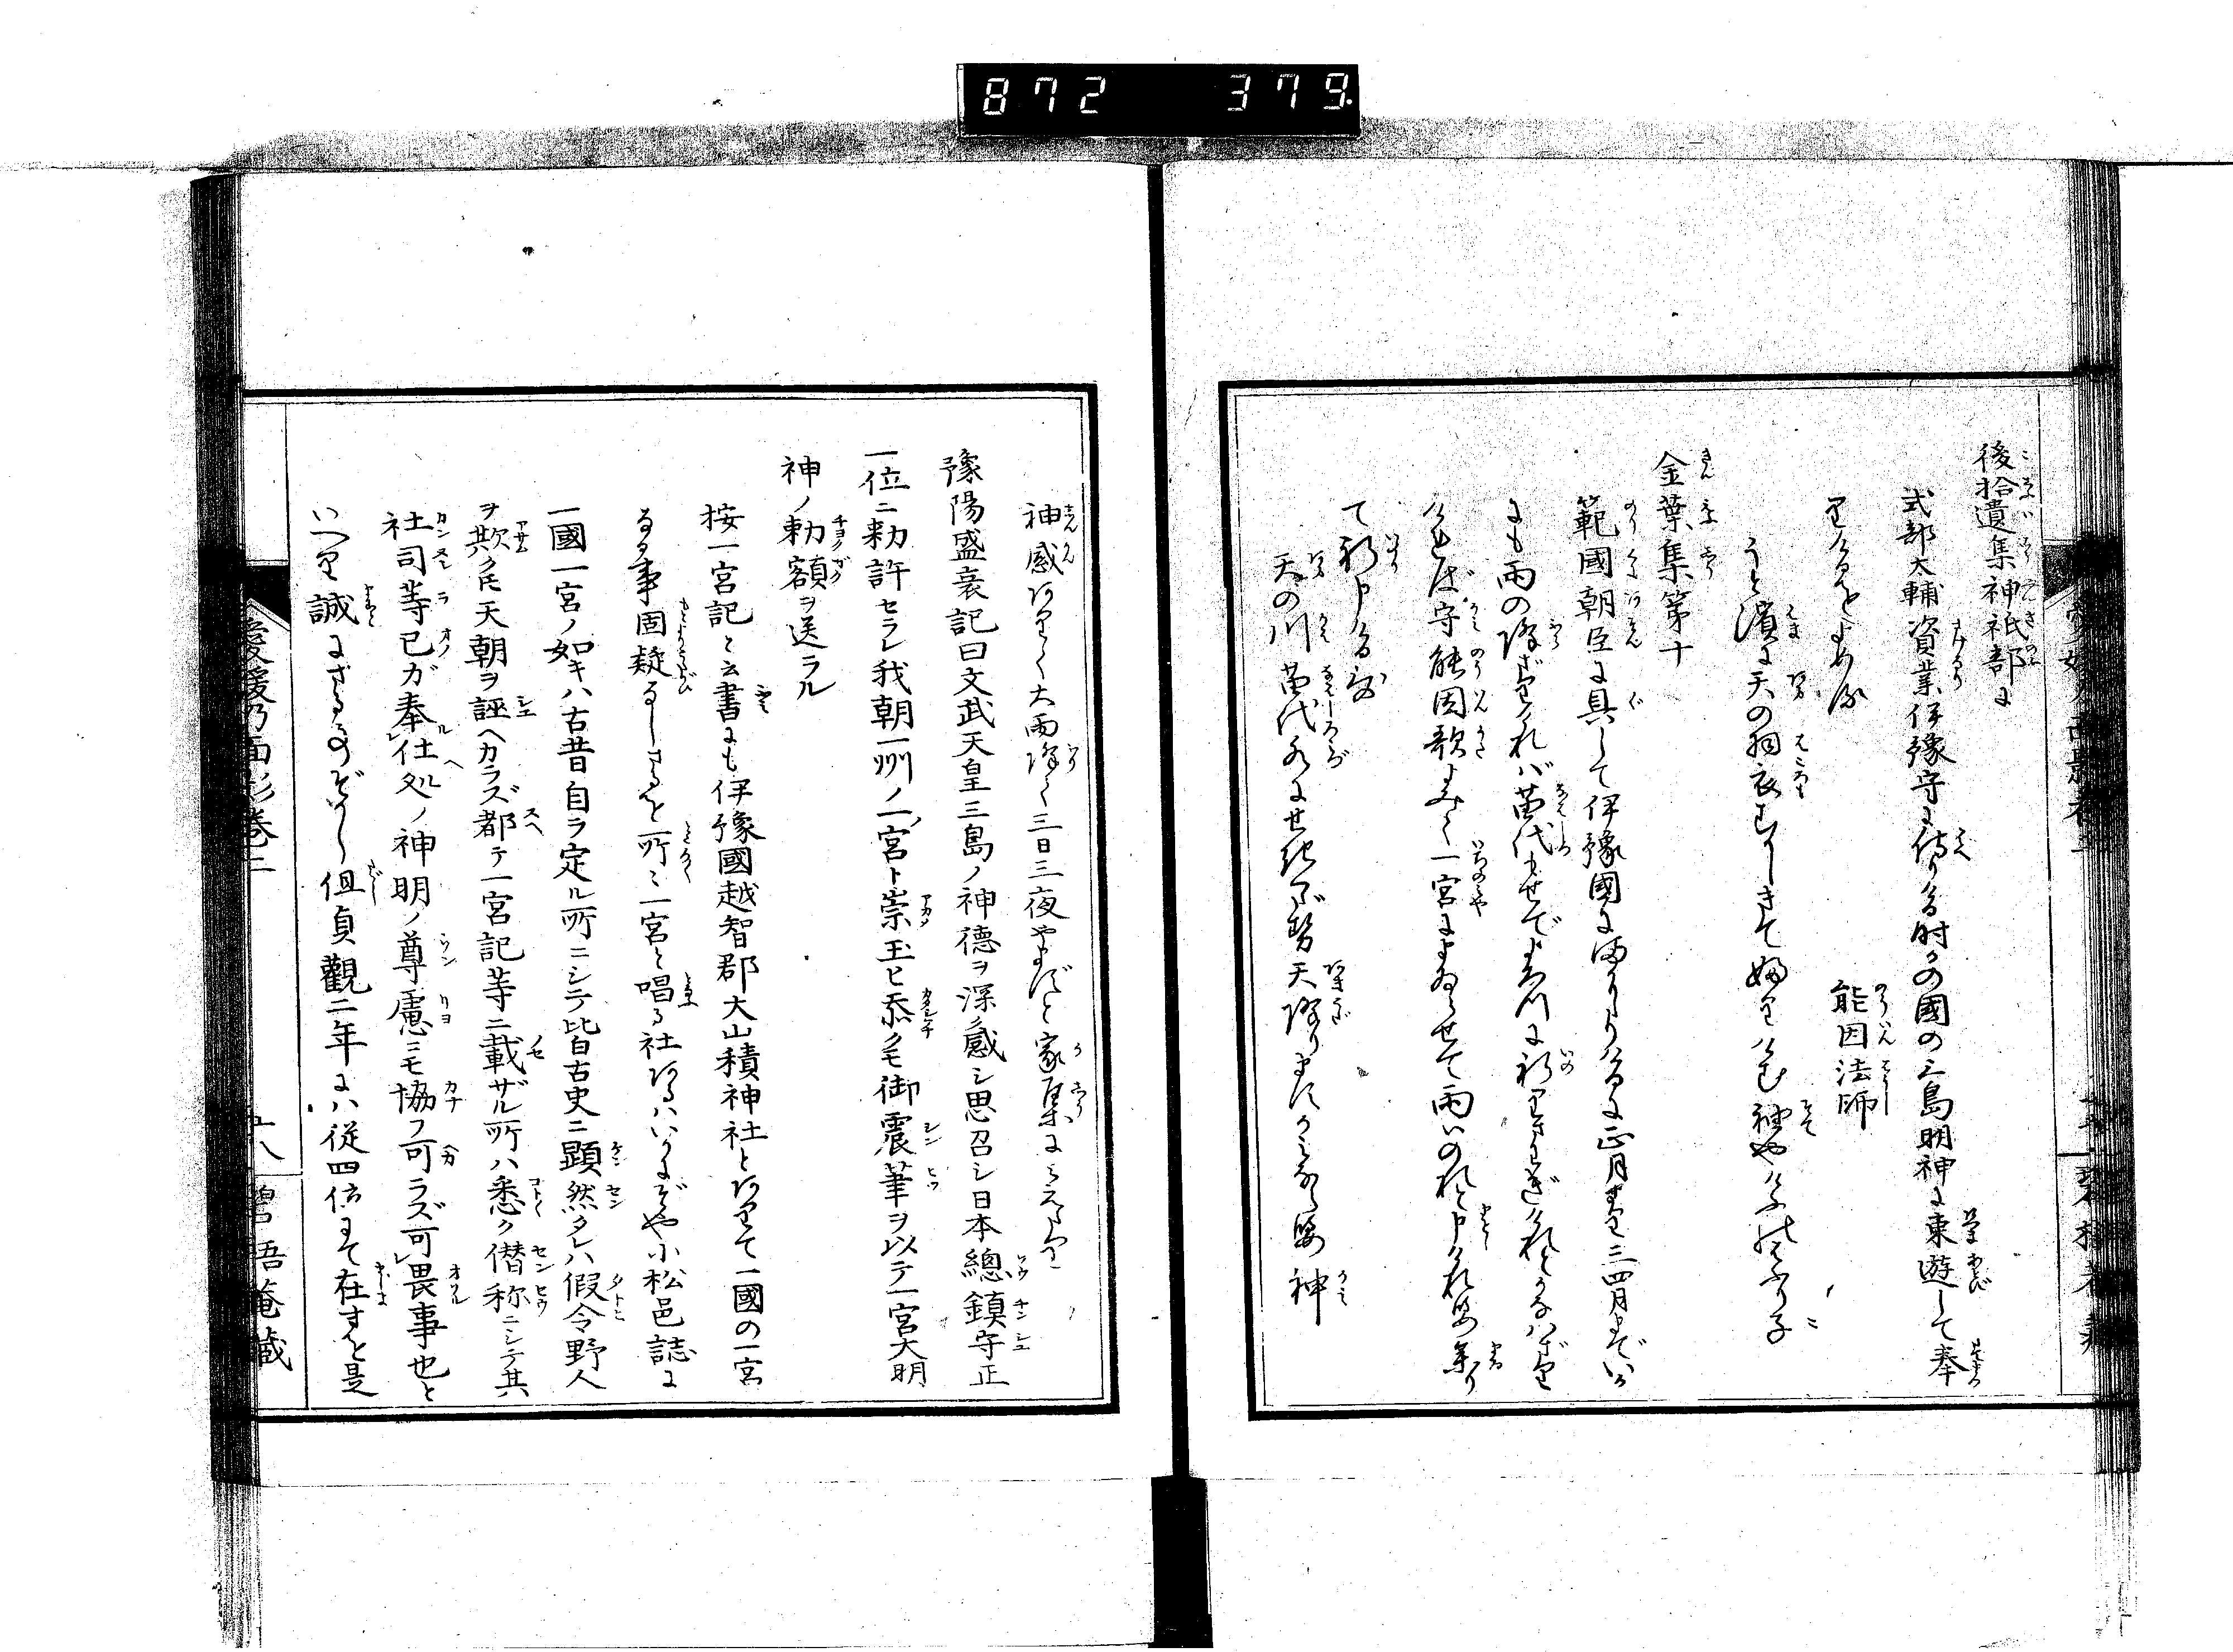 872 379.
後拾遺集神祇部に
式部大輔資業伊豫守に侍りける時かの國の三島明神に東遊して奉
りけるをよめる
能因法師
うと濱に天の羽衣むかしきてふりけむ袖やけふのはふり子
金葉集第十
範國朝臣に具して伊豫國にまかりたりけるに正月より三四月までいか
にも雨の降ざりければ苗代もせでよろづに祈りさわぎけれどかなはざり
ければ守能因歌よみて一宮にまゐらせて雨いのれと申ければ參り
て祈申ける歌
天の川苗代水にせきくだせ天降ります神ならば神
神感ありて大雨降て三日三夜やまずと家集に見えたり
豫陽盛衰記曰文武天皇三島ノ神德ヲ深ク感シ思召シ日本總鎮守正
一位ニ勅許セラレ我朝一州ノ一宮ト崇玉ヒ忝クモ御震筆ヲ以テ一宮大明
神ノ勅額ヲ送ラル
按一宮記と云書にも伊豫國越智郡大山積神社とありて一國の一宮
なる事固疑なしさるを所々一宮と唱る社あるハいかにぞや小松邑誌に
一國一宮ノ如キハ古昔自ラ定ル所ニシテ皆古史ニ顕然タレハ假令野人
ヲ欺クモ天朝ヲ誣ヘカラズ都テ一宮記等ニ載ザル所ハ悉ク僭称ニシテ其
社司等己ガ奉仕ル処ノ神明ノ尊慮ニモ協フ可ラズ可畏事也と
いへり誠にさるものぞかし但貞觀二年にハ從四位にて在すを是
愛媛乃面影巻二
五八
碧梧菴藏